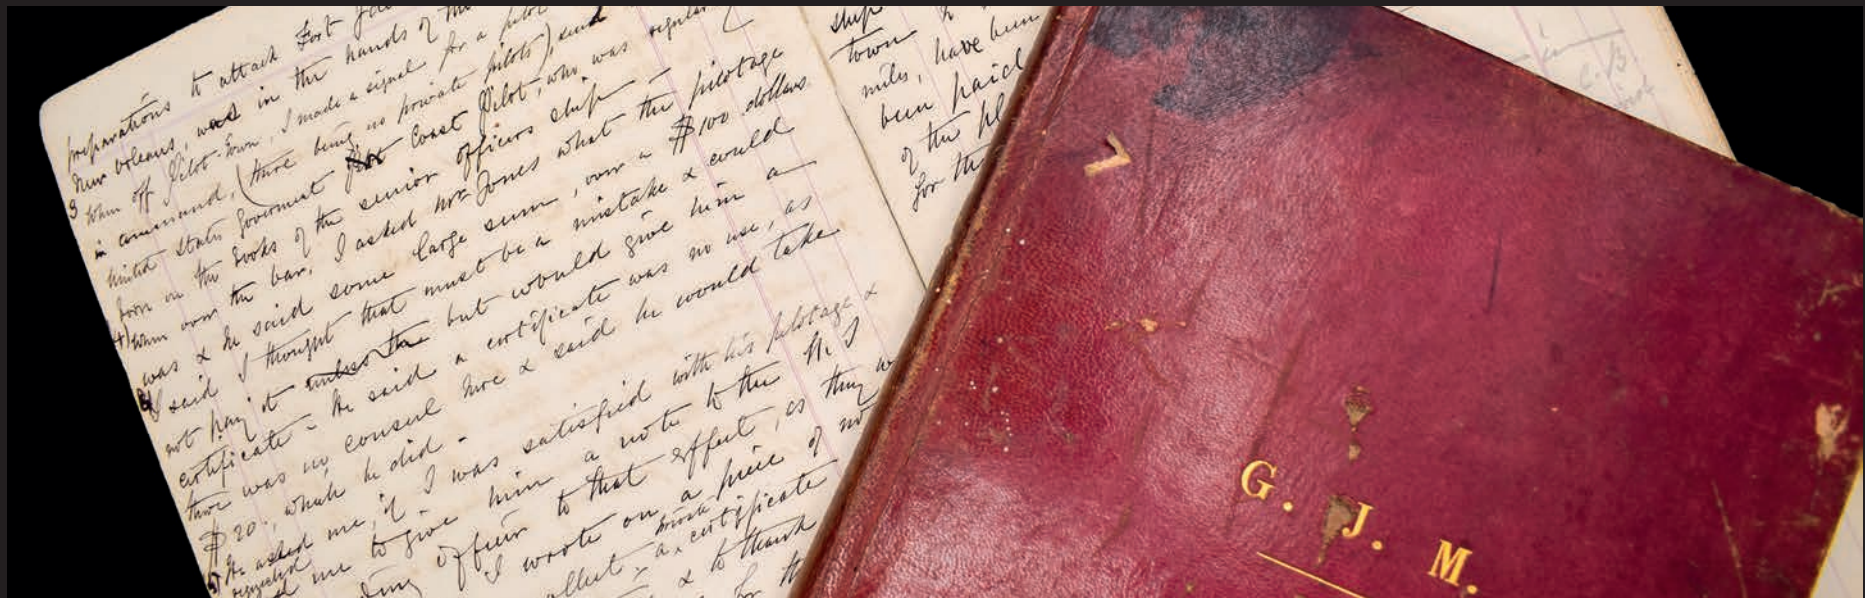 preparations to attack Fort Ja
New Orleans, was in the hands of the
3 When off Pilot Town, I made a signal for a pilot
in command, (there being no private pilots), and
United States Government Coast Pilot, who was regular
born on the books of the senior officers ship -
4) When over the bar, I asked Mr Jones what the pilotage
was & he said some large sum, over a $100 dollars.
I said I thought that must be a mistake & could
not pay it unless the but would give him a
certificate - He said a certificate was no use, as
there was no consul here & said he would take
$20, which he did -
5 He asked me, if I was satisfied with his pilotage &
requested me to give him a note to the
ding officer to that effect, as they w
I wrote on a piece of no
private
ollect - a certificate
& to thank
for th
ship
town
miles, have been
been paid
of the pl
for the
G. J. M.